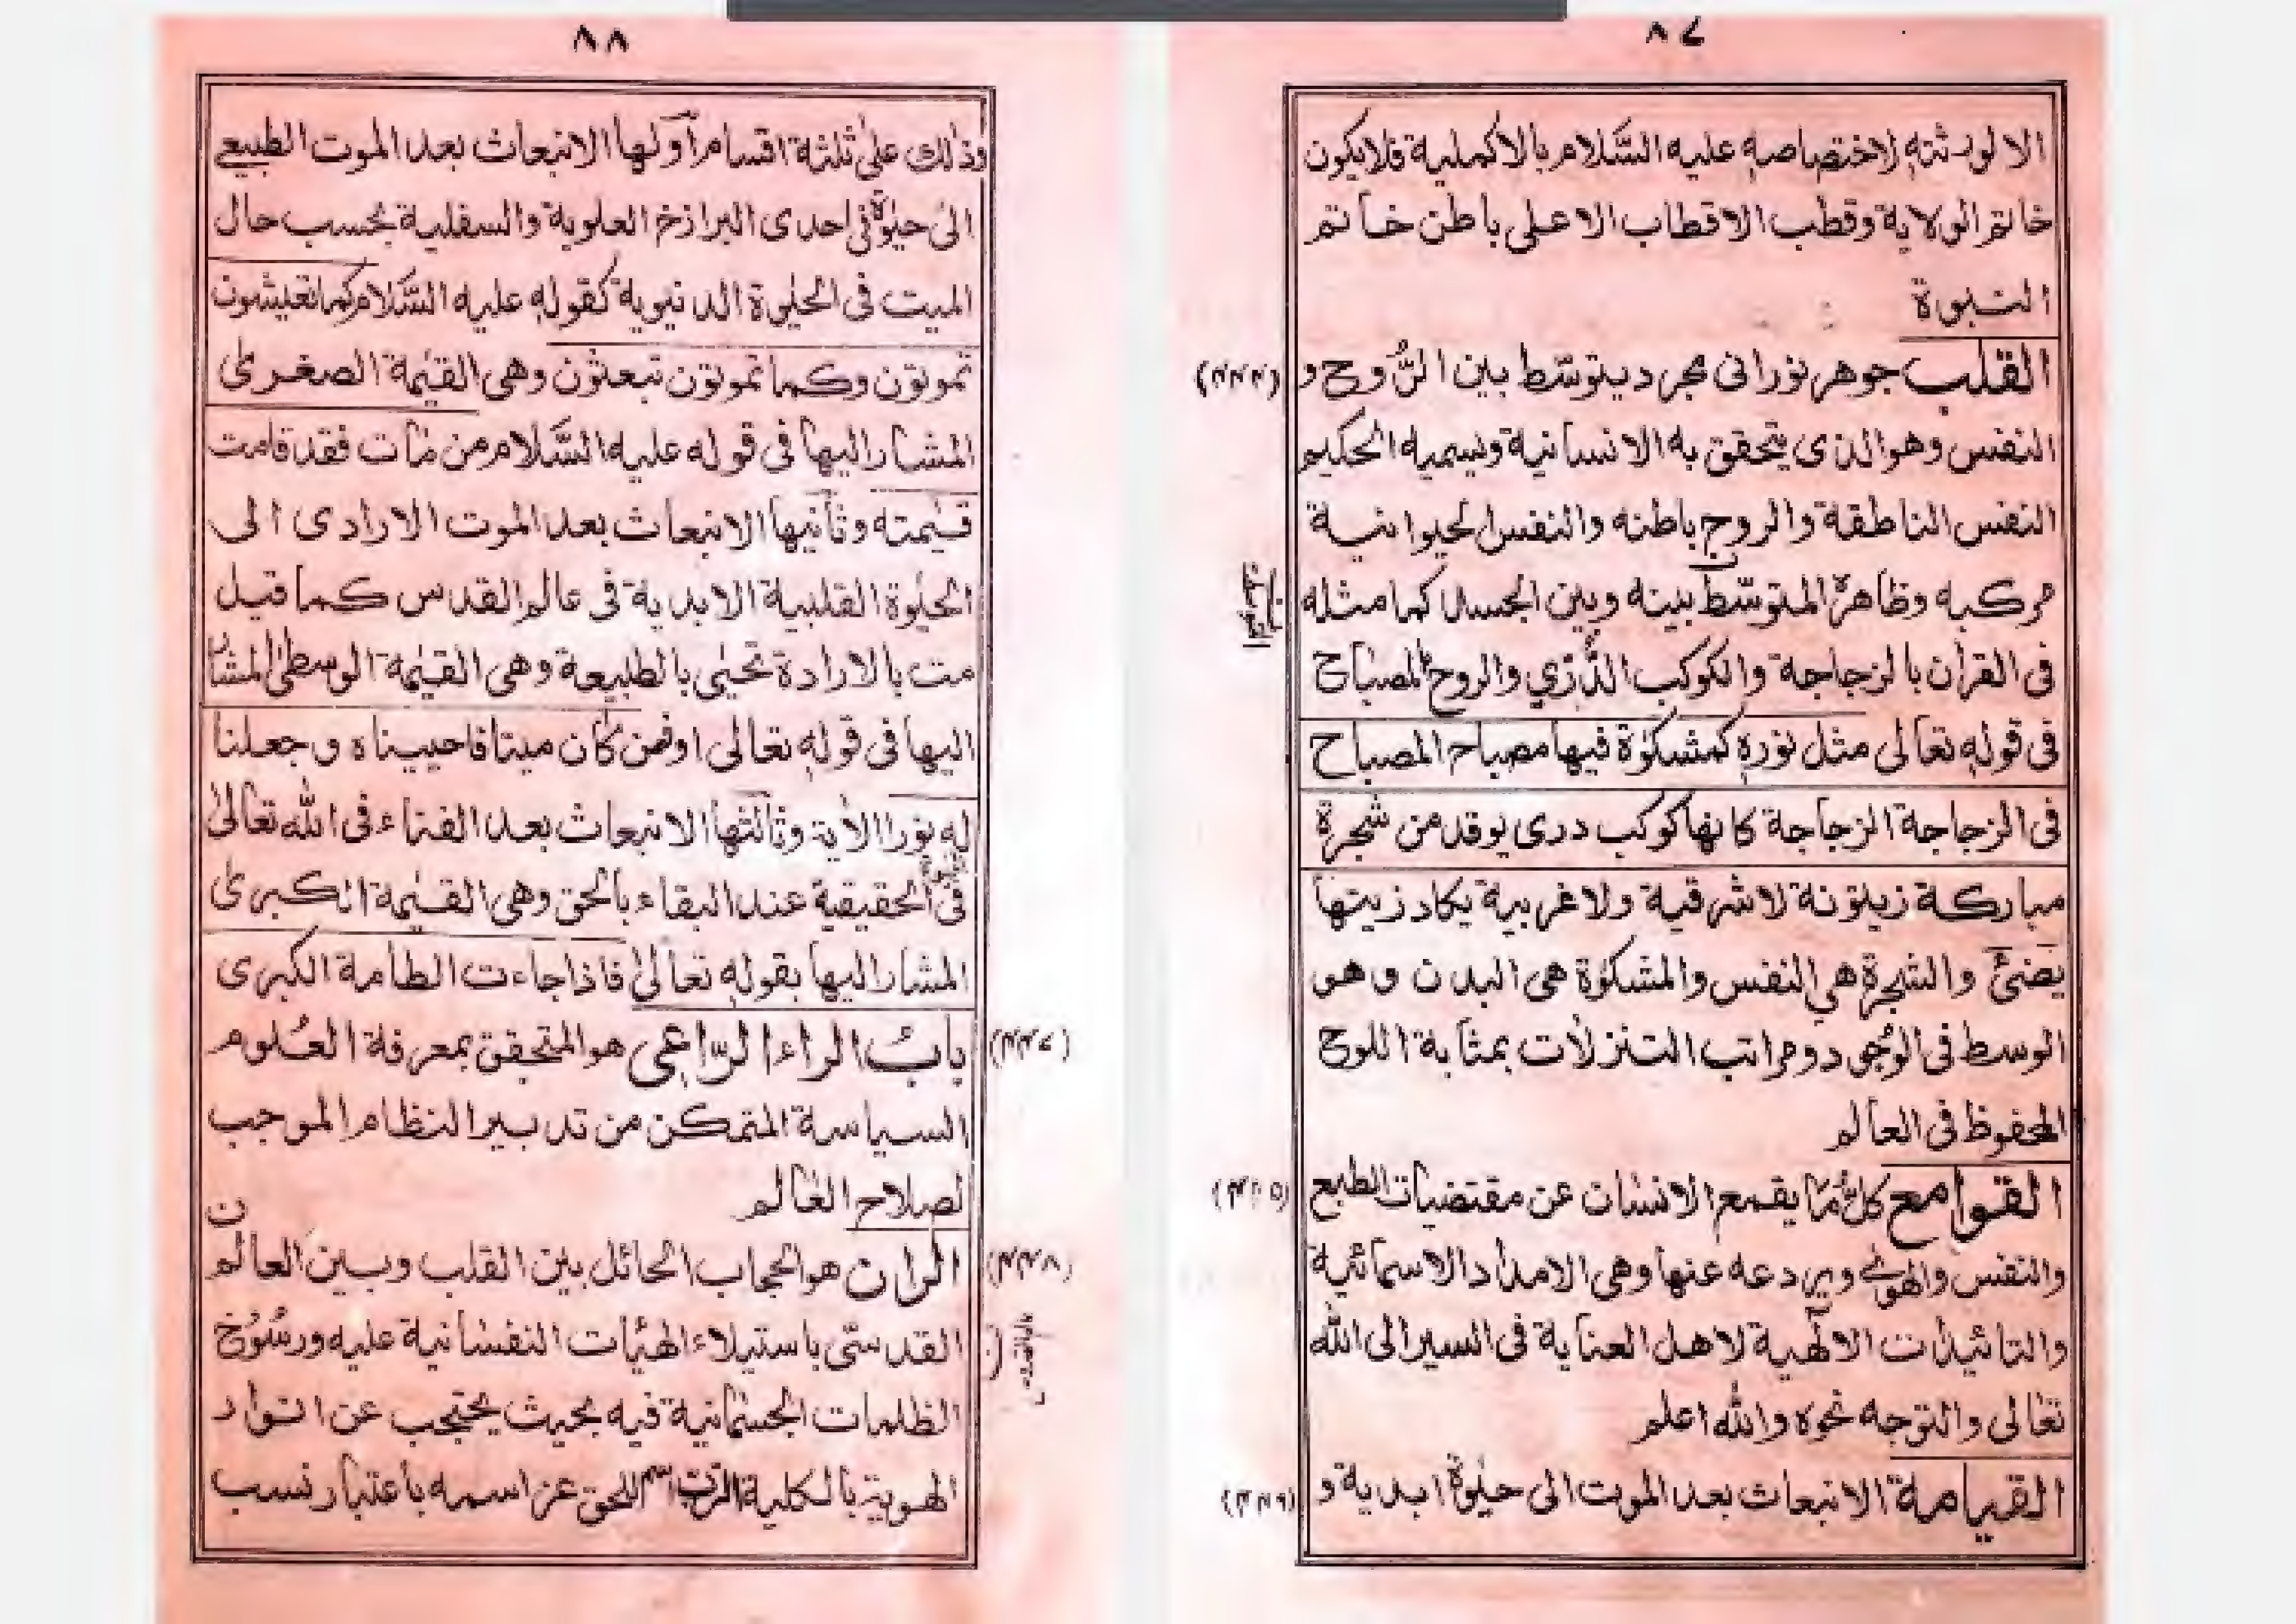 ٨٧
الا لورثته لاختصاصه عليه السَّلام بالاكملية فلايكون
خاتم الولاية وقطب الاقطاب الاعلى باطن خاتم
النبوة
القلب جوهر نورانى مجرد يتوسّط بين الرُّوح و
النفس وهو الذى يتحقق به الانسانية ويسميه الحكيم
النفس الناطقة والروح باطنه والنفس الحيوانية
مركبه وظاهرة المتوسّط بينه وبين الجسد كما مثله
فى القرأن بالزجاجة والكوكب الدُّرّي والروح المصباح
فى قوله تعالى مثل نوره كمشكوٰة فيها مصباح المصباح
فى الزجاجة الزجاجة كانها كوكب درى يوقد من شجرة
مباركة زيتونة لاشرقية ولاغربية يكاد زيتها
يضئ والشجرة هي النفس والمشكوٰة هى البدن وهو
الوسط فى الوجود ومراتب التنزلات بمثابة اللوح
المحفوظ فى العالم
القوامع كل ما يقمع الانسان عن مقتضيات الطبع
والنفس والهوى ويردعه عنها وهى الامداد الاسمائية
والتائيدات الالٰهية لاهل العناية فى السير الى الله
تعالى والتوجه نحوه والله اعلم
القيامة الانبعاث بعد الموت الى حيٰوة ابدية و
٨٨
وذلك على ثلثة اقسام اولها الانبعاث بعد الموت الطبيعے
الى حيٰوة فى احدى البرازخ العلوية والسفلية بحسب حال
الميت فى الحيٰوة الدنيوية كقوله عليه السَّلام كما تعيشون
تموتون وكما تموتون تبعثون وهى القيٰمة الصغرىٰ
المشار اليها فى قوله عليه السَّلام من مات فقد قامت
قيٰمته وثانيها الانبعاث بعد الموت الارادى الى
الحيٰوة القلبية الابدية فى عالم القدس كما قيل
مت بالارادة تحيىٰ بالطبيعة وهى القيٰمة الوسطىٰ المشا
اليها فى قوله تعالى اوفمن كان ميتا فاحييناه وجعلنا
له نورا الأية وثالثها الانبعاث بعد الفناء فى الله تعالىٰ
فى الحقيقية عند البقاء بالحق وهى القيٰمة الكبرىٰ
المشار اليها بقوله تعالىٰ فاذا جاءت الطامة الكبرى
(٢٢٧) بابُ الراء الرّاعى هو المتحقق بمعرفة العُلوم
السياسة المتمكن من تدبير النظام الموجب
لصلاح العالم
(٢٢٨) الران هو الحجاب الحائل بين القلب وبين العالم
القدسّى باستيلاء الهيٰأت النفسانية عليه ورسُوخ
الظلمات الجسمانية فيه بحيث يحتجب عن انوار
الهوية بالكلية الرب اسم للحق عز اسمه باعتبار نسب